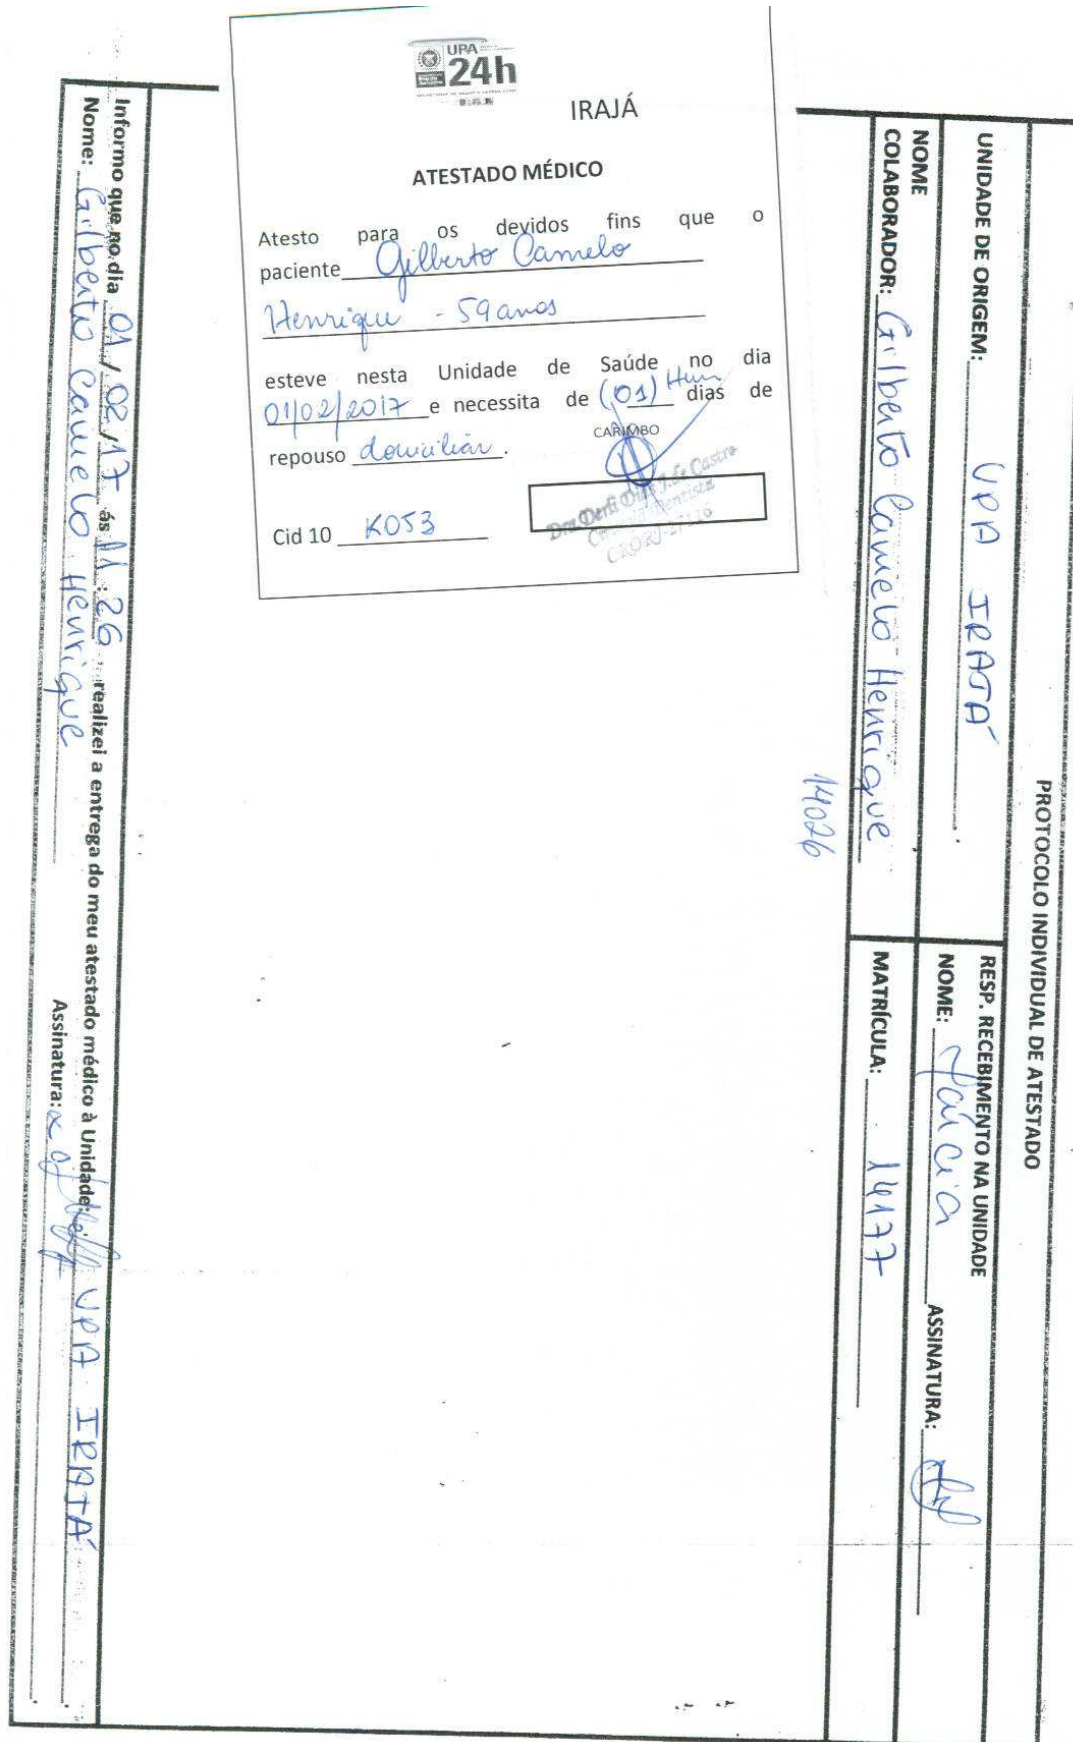 UPA
24h
IRAJÁ
ATESTADO MÉDICO
Atesto para os devidos fins que o
paciente Gilberto Camelo
Henrique - 59 anos
esteve nesta Unidade de Saúde no dia
01/02/2017 e necessita de (01) Hum dias de
repouso domiciliar.
CARIMBO
Dra Derli Dias J. de Castro
Cid 10 K053
PROTOCOLO INDIVIDUAL DE ATESTADO
UNIDADE DE ORIGEM: UPA IRAJÁ.
RESP. RECEBIMENTO NA UNIDADE
NOME: ASSINATURA:
NOME
COLABORADOR: Gilberto Camelo Henrique
MATRÍCULA: 14177
14026
Informo que no dia 01/02/17 ás 11:26 realizei a entrega do meu atestado médico à Unidade: UPA IRAJÁ.
Nome: Gilberto Camelo Henrique Assinatura: